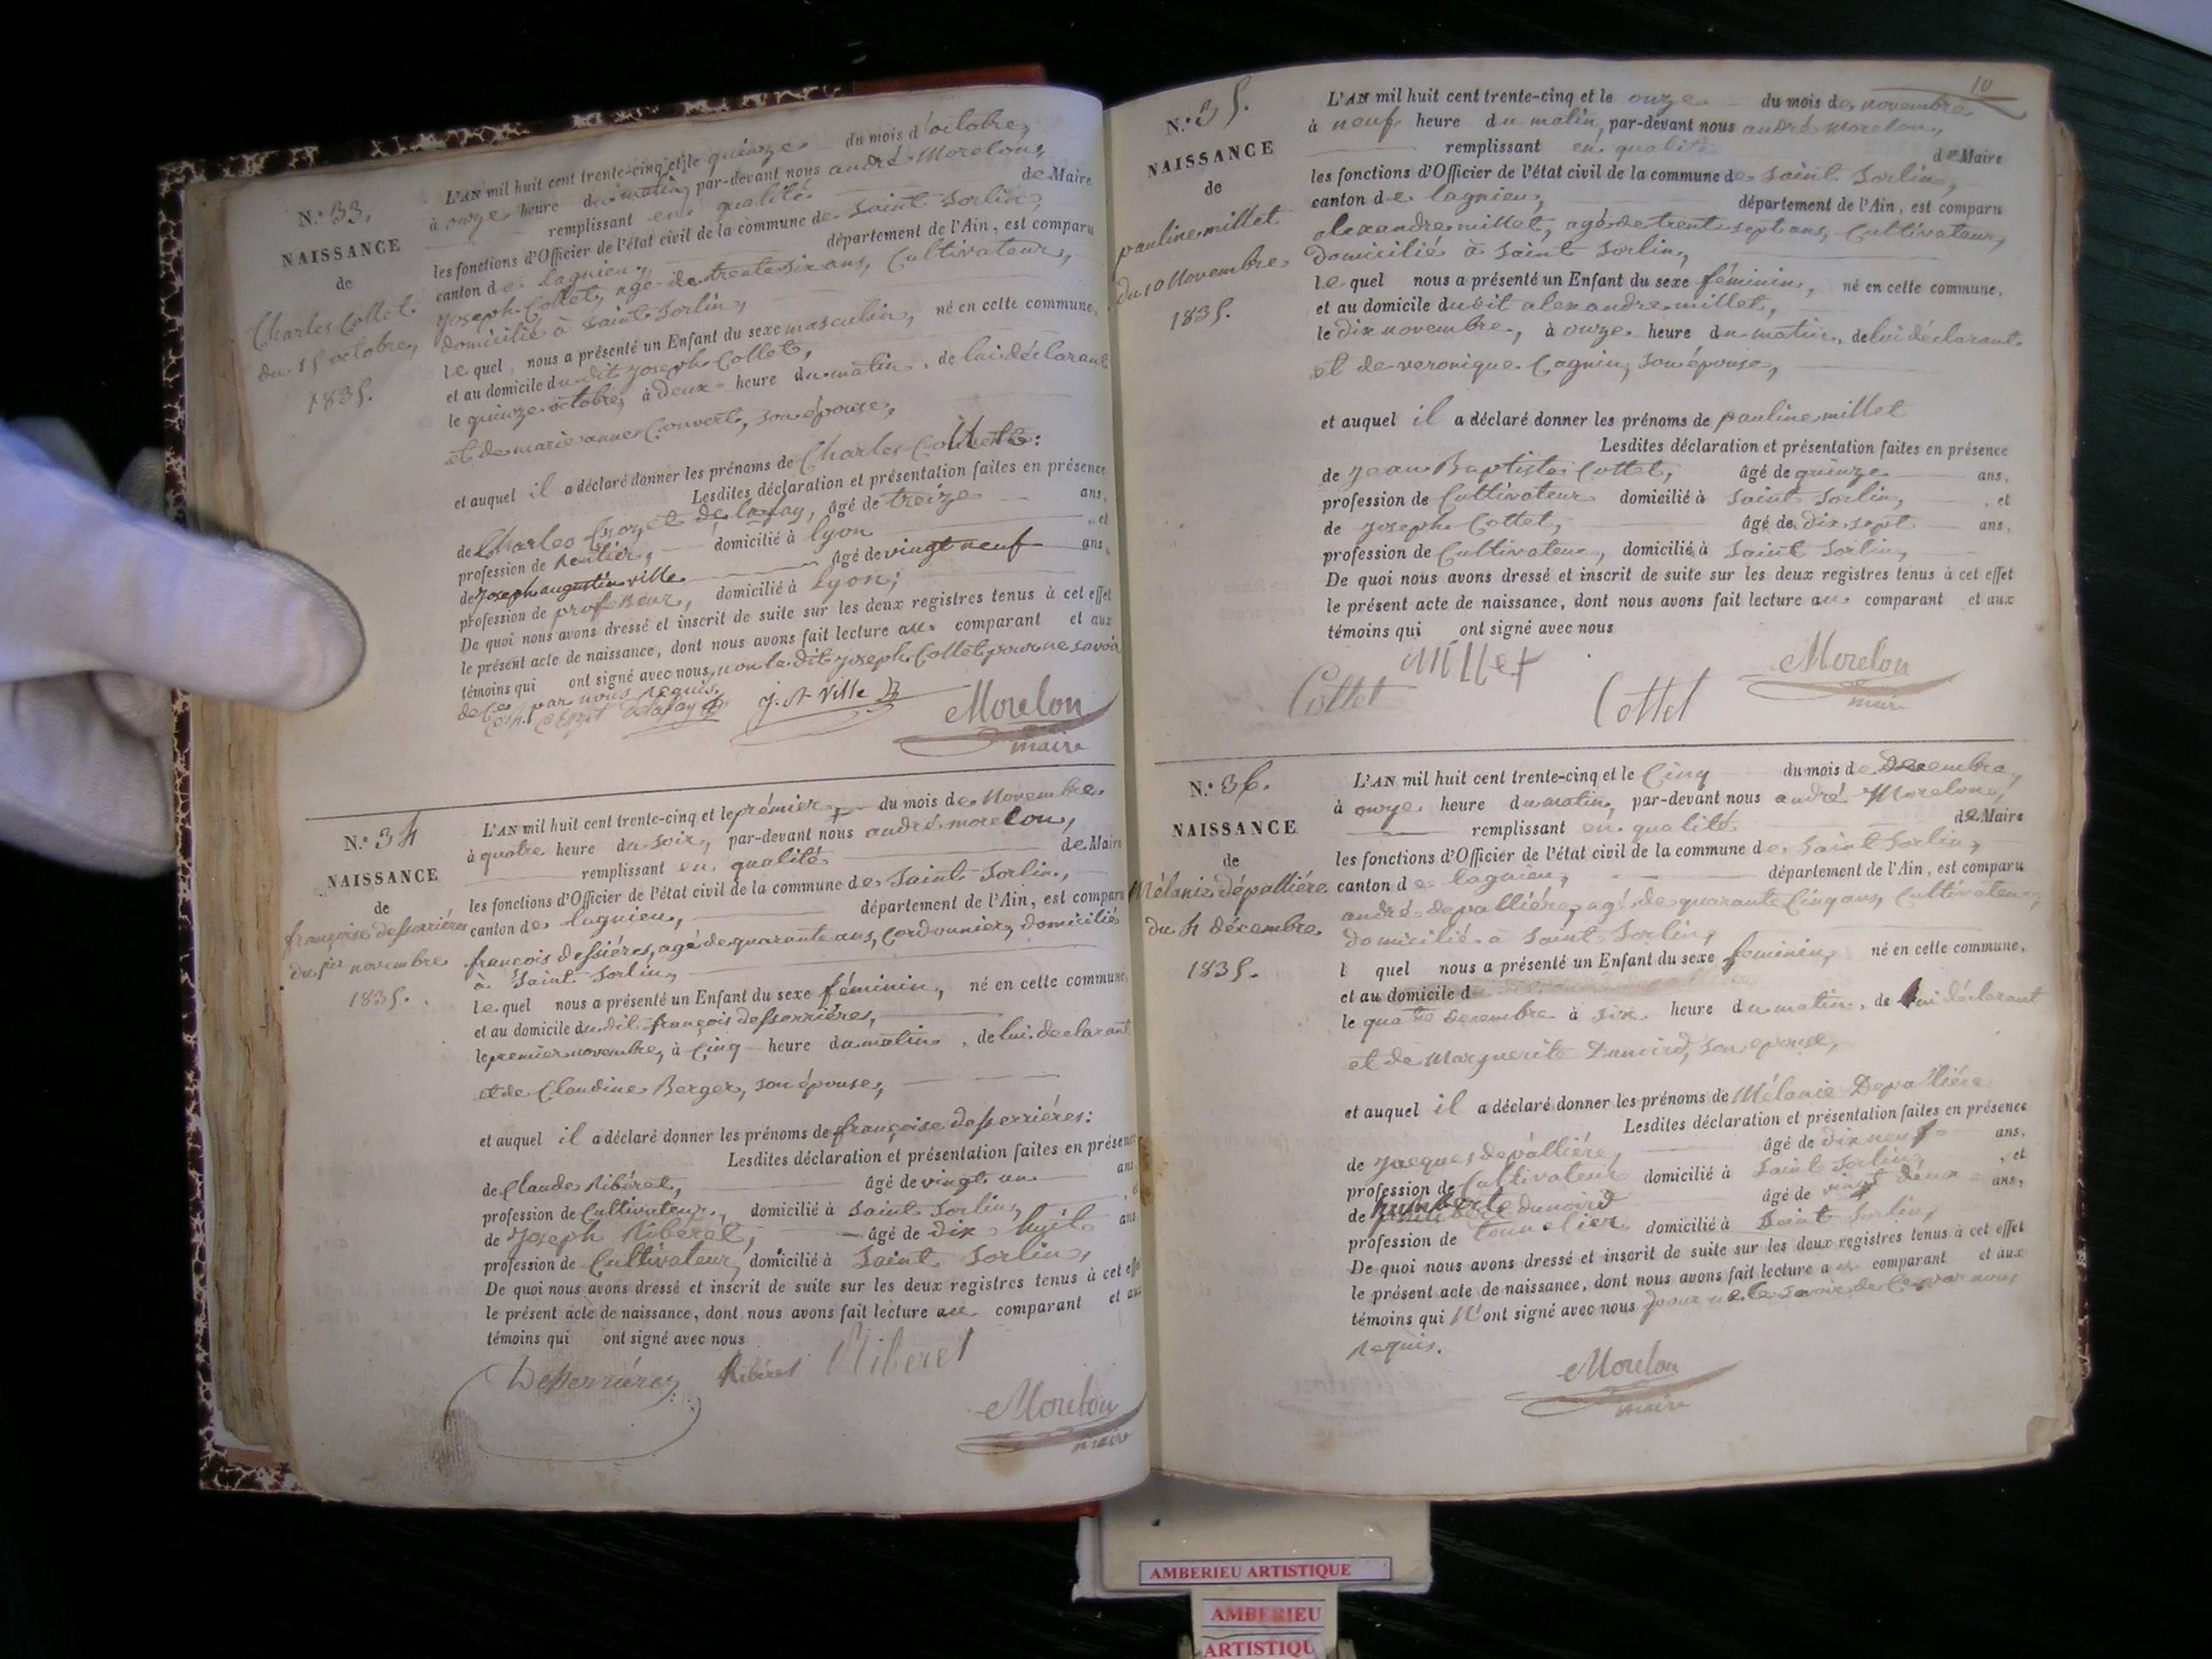 N.° 33.
NAISSANCE
de
Charles Collet
du 15 octobre,
1835.
L'AN mil huit cent trente-cinq et le quinze du mois d'octobre,
à onze heure du matin, par-devant nous andré Morelon,
remplissant en qualité de Maire
les fonctions d'Officier de l'état civil de la commune de Saint Sorlin,
canton de lagnieu, département de l'Ain, est comparu
Joseph Collet, agé de trente six ans, Cultivateur,
domicilié à Saint Sorlin,
lequel nous a présenté un Enfant du sexe masculin, né en cette commune,
et au domicile dudit Joseph Collet,
le quinze octobre, à deux heure du matin, de lui déclarant
et de marie anne Convert, son épouse,
et auquel il a déclaré donner les prénoms de Charles Collet:
Lesdites déclaration et présentation faites en présence
de Charles Crozet de lafay, âgé de treize ans,
profession de Rentier, domicilié à lyon, et
de Joseph augustin ville âgé de vingt neuf ans,
profession de professeur, domicilié à lyon;
De quoi nous avons dressé et inscrit de suite sur les deux registres tenus à cet effet
le présent acte de naissance, dont nous avons fait lecture au comparant et aux
témoins qui ont signé avec nous, non le dit Joseph Collet pour ne savoir
de Ce par nous requis.
J. A Ville
Morelon
maire
N.° 34
NAISSANCE
de
françoise desserriéres
du 1er novembre
1835.
L'AN mil huit cent trente-cinq et le prémier, du mois de Novembre
à quatre heure du soir, par-devant nous andré morelon,
remplissant en qualité de Maire
les fonctions d'Officier de l'état civil de la commune de Saint Sorlin,
canton de lagnieu, département de l'Ain, est comparu
françois dessiéres, agé de quarante ans, Cordonnier, domicilié
à Saint Sorlin,
lequel nous a présenté un Enfant du sexe féminin, né en cette commune,
et au domicile dudit françois desserriéres,
le premier novembre, à Cinq heure du matin, de lui declarant
et de Claudine Berger, son épouse,
et auquel il a déclaré donner les prénoms de françoise desserriéres:
Lesdites déclaration et présentation faites en présence
de Claude Ribéret, âgé de vingt un ans
profession de Cultivateur, domicilié à Saint Sorlin, et
de Joseph Ribéret, âgé de dix huit ans
profession de Cultivateur, domicilié à Saint Sorlin,
De quoi nous avons dressé et inscrit de suite sur les deux registres tenus à cet effet
le présent acte de naissance, dont nous avons fait lecture au comparant et aux
témoins qui ont signé avec nous
Desserriéres Ribéret Riberet
Morelon
maire
10
N.° 35.
NAISSANCE
de
pauline millet
du 10 Novembre
1835.
L'AN mil huit cent trente-cinq et le onze du mois de novembre
à neuf heure du matin, par-devant nous andré morelon,
remplissant en qualité de Maire
les fonctions d'Officier de l'état civil de la commune de Saint Sorlin,
canton de lagnieu, département de l'Ain, est comparu
alexandre millet, agé de trente sept ans, Cultivateur,
domicilié à Saint Sorlin,
lequel nous a présenté un Enfant du sexe féminin, né en cette commune,
et au domicile dudit alexandre millet,
le dix novembre, à onze heure du matin, de lui déclarant
et de veronique Cagnin, son épouse,
et auquel il a déclaré donner les prénoms de pauline millet
Lesdites déclaration et présentation faites en présence
de Jean Baptiste Cottet, âgé de quinze ans,
profession de Cultivateur domicilié à Saint Sorlin, et
de Joseph Cottet, âgé de dix sept ans,
profession de Cultivateur, domicilié à Saint Sorlin,
De quoi nous avons dressé et inscrit de suite sur les deux registres tenus à cet effet
le présent acte de naissance, dont nous avons fait lecture au comparant et aux
témoins qui ont signé avec nous
Millet
Cottet Cottet Morelon
maire
N.° 36.
NAISSANCE
de
Mélanie dépalliére
du 4 décembre
1835.
L'AN mil huit cent trente-cinq et le Cinq du mois de Decembre,
à onze heure du matin, par-devant nous andré Morelon,
remplissant en qualité de Maire
les fonctions d'Officier de l'état civil de la commune de Saint Sorlin,
canton de lagnieu, département de l'Ain, est comparu
andré depalliére, agé de quarante Cinq ans, Cultivateur,
domicilié à Saint Sorlin,
l quel nous a présenté un Enfant du sexe feminin, né en cette commune,
et au domicile d
le quatre decembre à six heure du matin, de lui déclarant
et de Marguerite Dunoird, son epouse,
et auquel il a déclaré donner les prénoms de Mélanie Depalliére
Lesdites déclaration et présentation faites en présence
de Jacques depalliére, âgé de dix neuf ans,
profession de Cultivateur domicilié à Saint Sorlin, et
de humberte dunoird âgé de vingt deux ans,
profession de tonnelier domicilié à Saint Sorlin,
De quoi nous avons dressé et inscrit de suite sur les deux registres tenus à cet effet
le présent acte de naissance, dont nous avons fait lecture au comparant et aux
témoins qui n'ont signé avec nous pour ne le savoir de Ce par nous
requis.
Morelon
maire
AMBERIEU ARTISTIQUE
AMBERIEU
ARTISTIQU